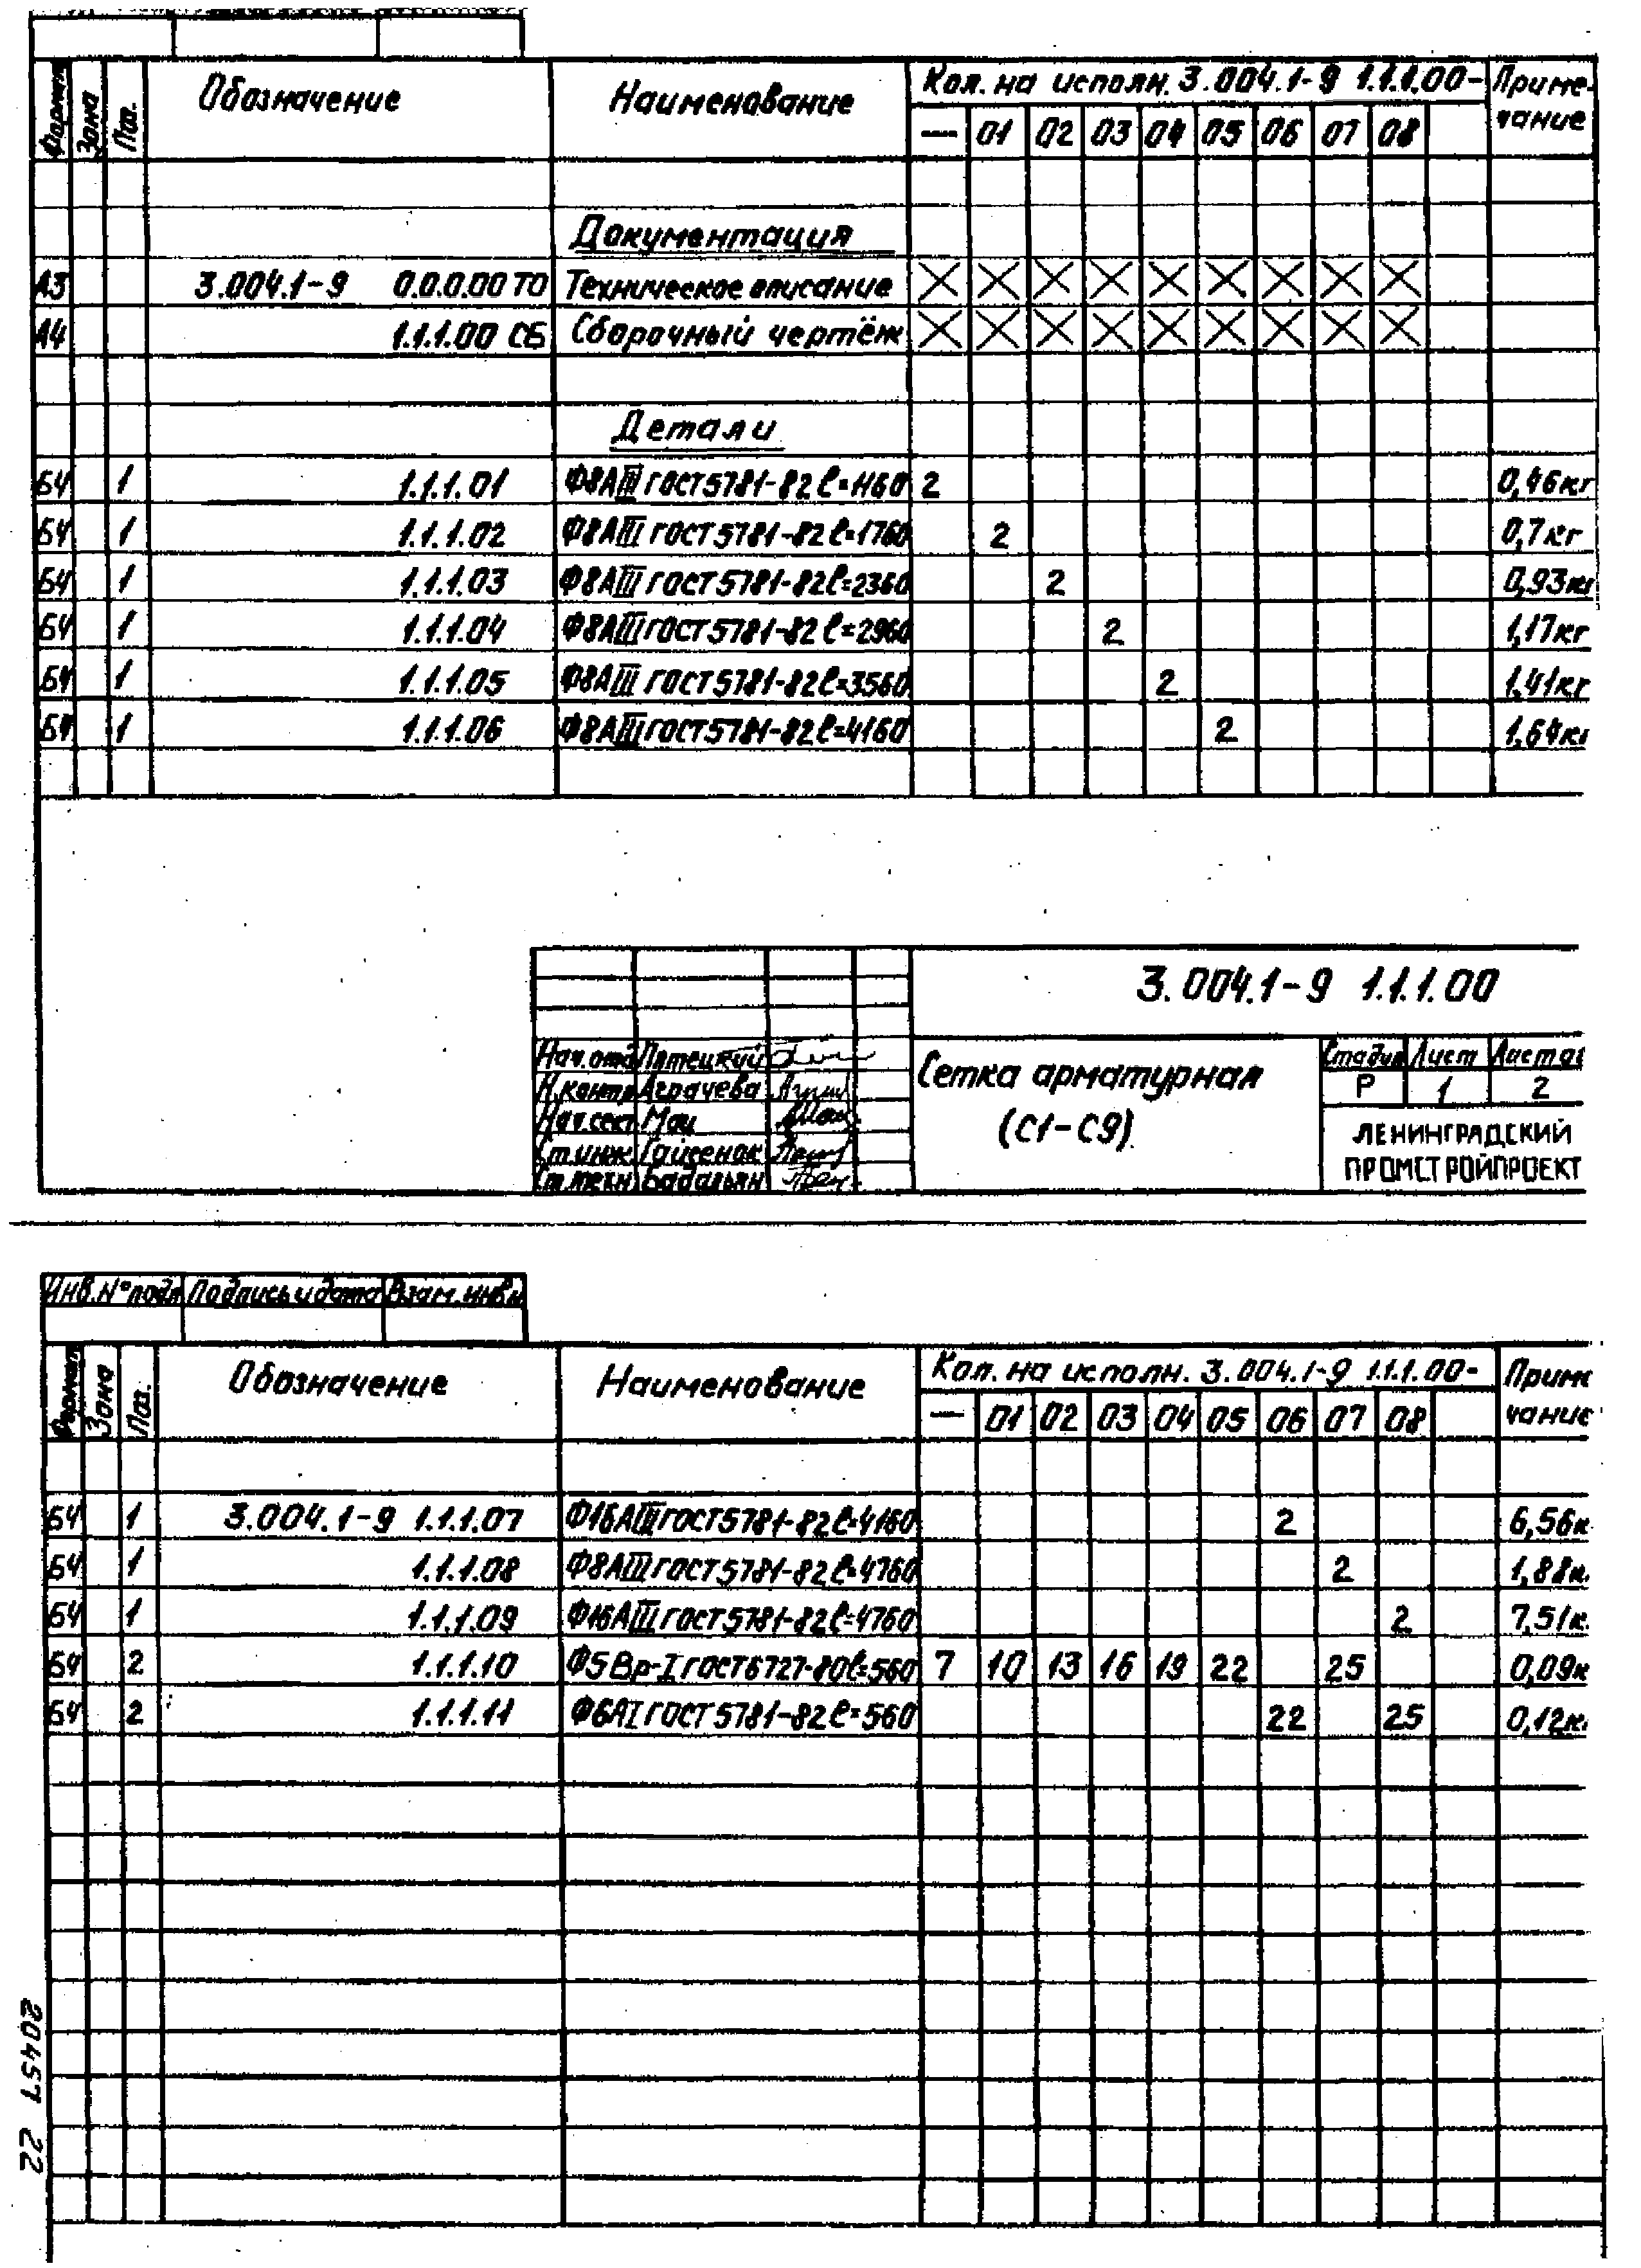 Формат Зона Поз. Обозначение Наименование Кол. на исполн. 3.004.1-9 1.1.1.00- Примечание
— 01 02 03 04 05 06 07 08
Документация
А3 3.004.1-9 0.0.0.00 ТО Техническое описание
А4 1.1.1.00 СБ Сборочный чертёж
Детали
БЧ 1 1.1.1.01 Ф8АIII ГОСТ 5781-82 ℓ=1160 2 0,46кг
БЧ 1 1.1.1.02 Ф8АIII ГОСТ 5781-82 ℓ=1760 2 0,7кг
БЧ 1 1.1.1.03 Ф8АIII ГОСТ 5781-82 ℓ=2360 2 0,93кг
БЧ 1 1.1.1.04 Ф8АIII ГОСТ 5781-82 ℓ=2960 2 1,17кг
БЧ 1 1.1.1.05 Ф8АIII ГОСТ 5781-82 ℓ=3560 2 1,41кг
БЧ 1 1.1.1.06 Ф8АIII ГОСТ 5781-82 ℓ=4160 2 1,64кг
3.004.1-9 1.1.1.00
Нач.отд Пятецкий
Н.контр Аграчева
Нач.сект Мац
Ст.инж Гайсенок
Ст.техн Бадальян
Сетка арматурная
(С1-С9)
Стадия Лист Листов
Р 1 2
ЛЕНИНГРАДСКИЙ
ПРОМСТРОЙПРОЕКТ
Инв.N°подл Подпись и дата Взам.инв.N
Формат Зона Поз. Обозначение Наименование Кол. на исполн. 3.004.1-9 1.1.1.00- Приме
чание
— 01 02 03 04 05 06 07 08
БЧ 1 3.004.1-9 1.1.1.07 Ф16АIII ГОСТ 5781-82 ℓ=4160 2 6,56к
БЧ 1 1.1.1.08 Ф8АIII ГОСТ 5781-82 ℓ=4760 2 1,88к
БЧ 1 1.1.1.09 Ф16АIII ГОСТ 5781-82 ℓ=4760 2 7,51к
БЧ 2 1.1.1.10 Ф5Вр-I ГОСТ 6727-80 ℓ=560 7 10 13 16 19 22 25 0,09к
БЧ 2 1.1.1.11 Ф6АI ГОСТ 5781-82 ℓ=560 22 25 0,12к
20457 22